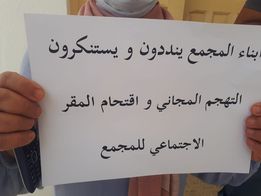 ابناء المجمع ينددون و يستنكرون
التهجم المجاني و اقتحام المقر
الاجتماعي للمجمع